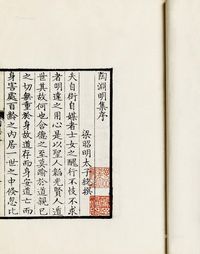 陶淵明集序
梁昭明太子統撰
夫自衒自媒者士女之醜行不忮不求
者明達之用心是以聖人韜光賢人遁
世其故何也含德之至莫踰於道親己
之切無重於身故道存而身安道亡而
身害處百齡之內居一世之中倏忽比